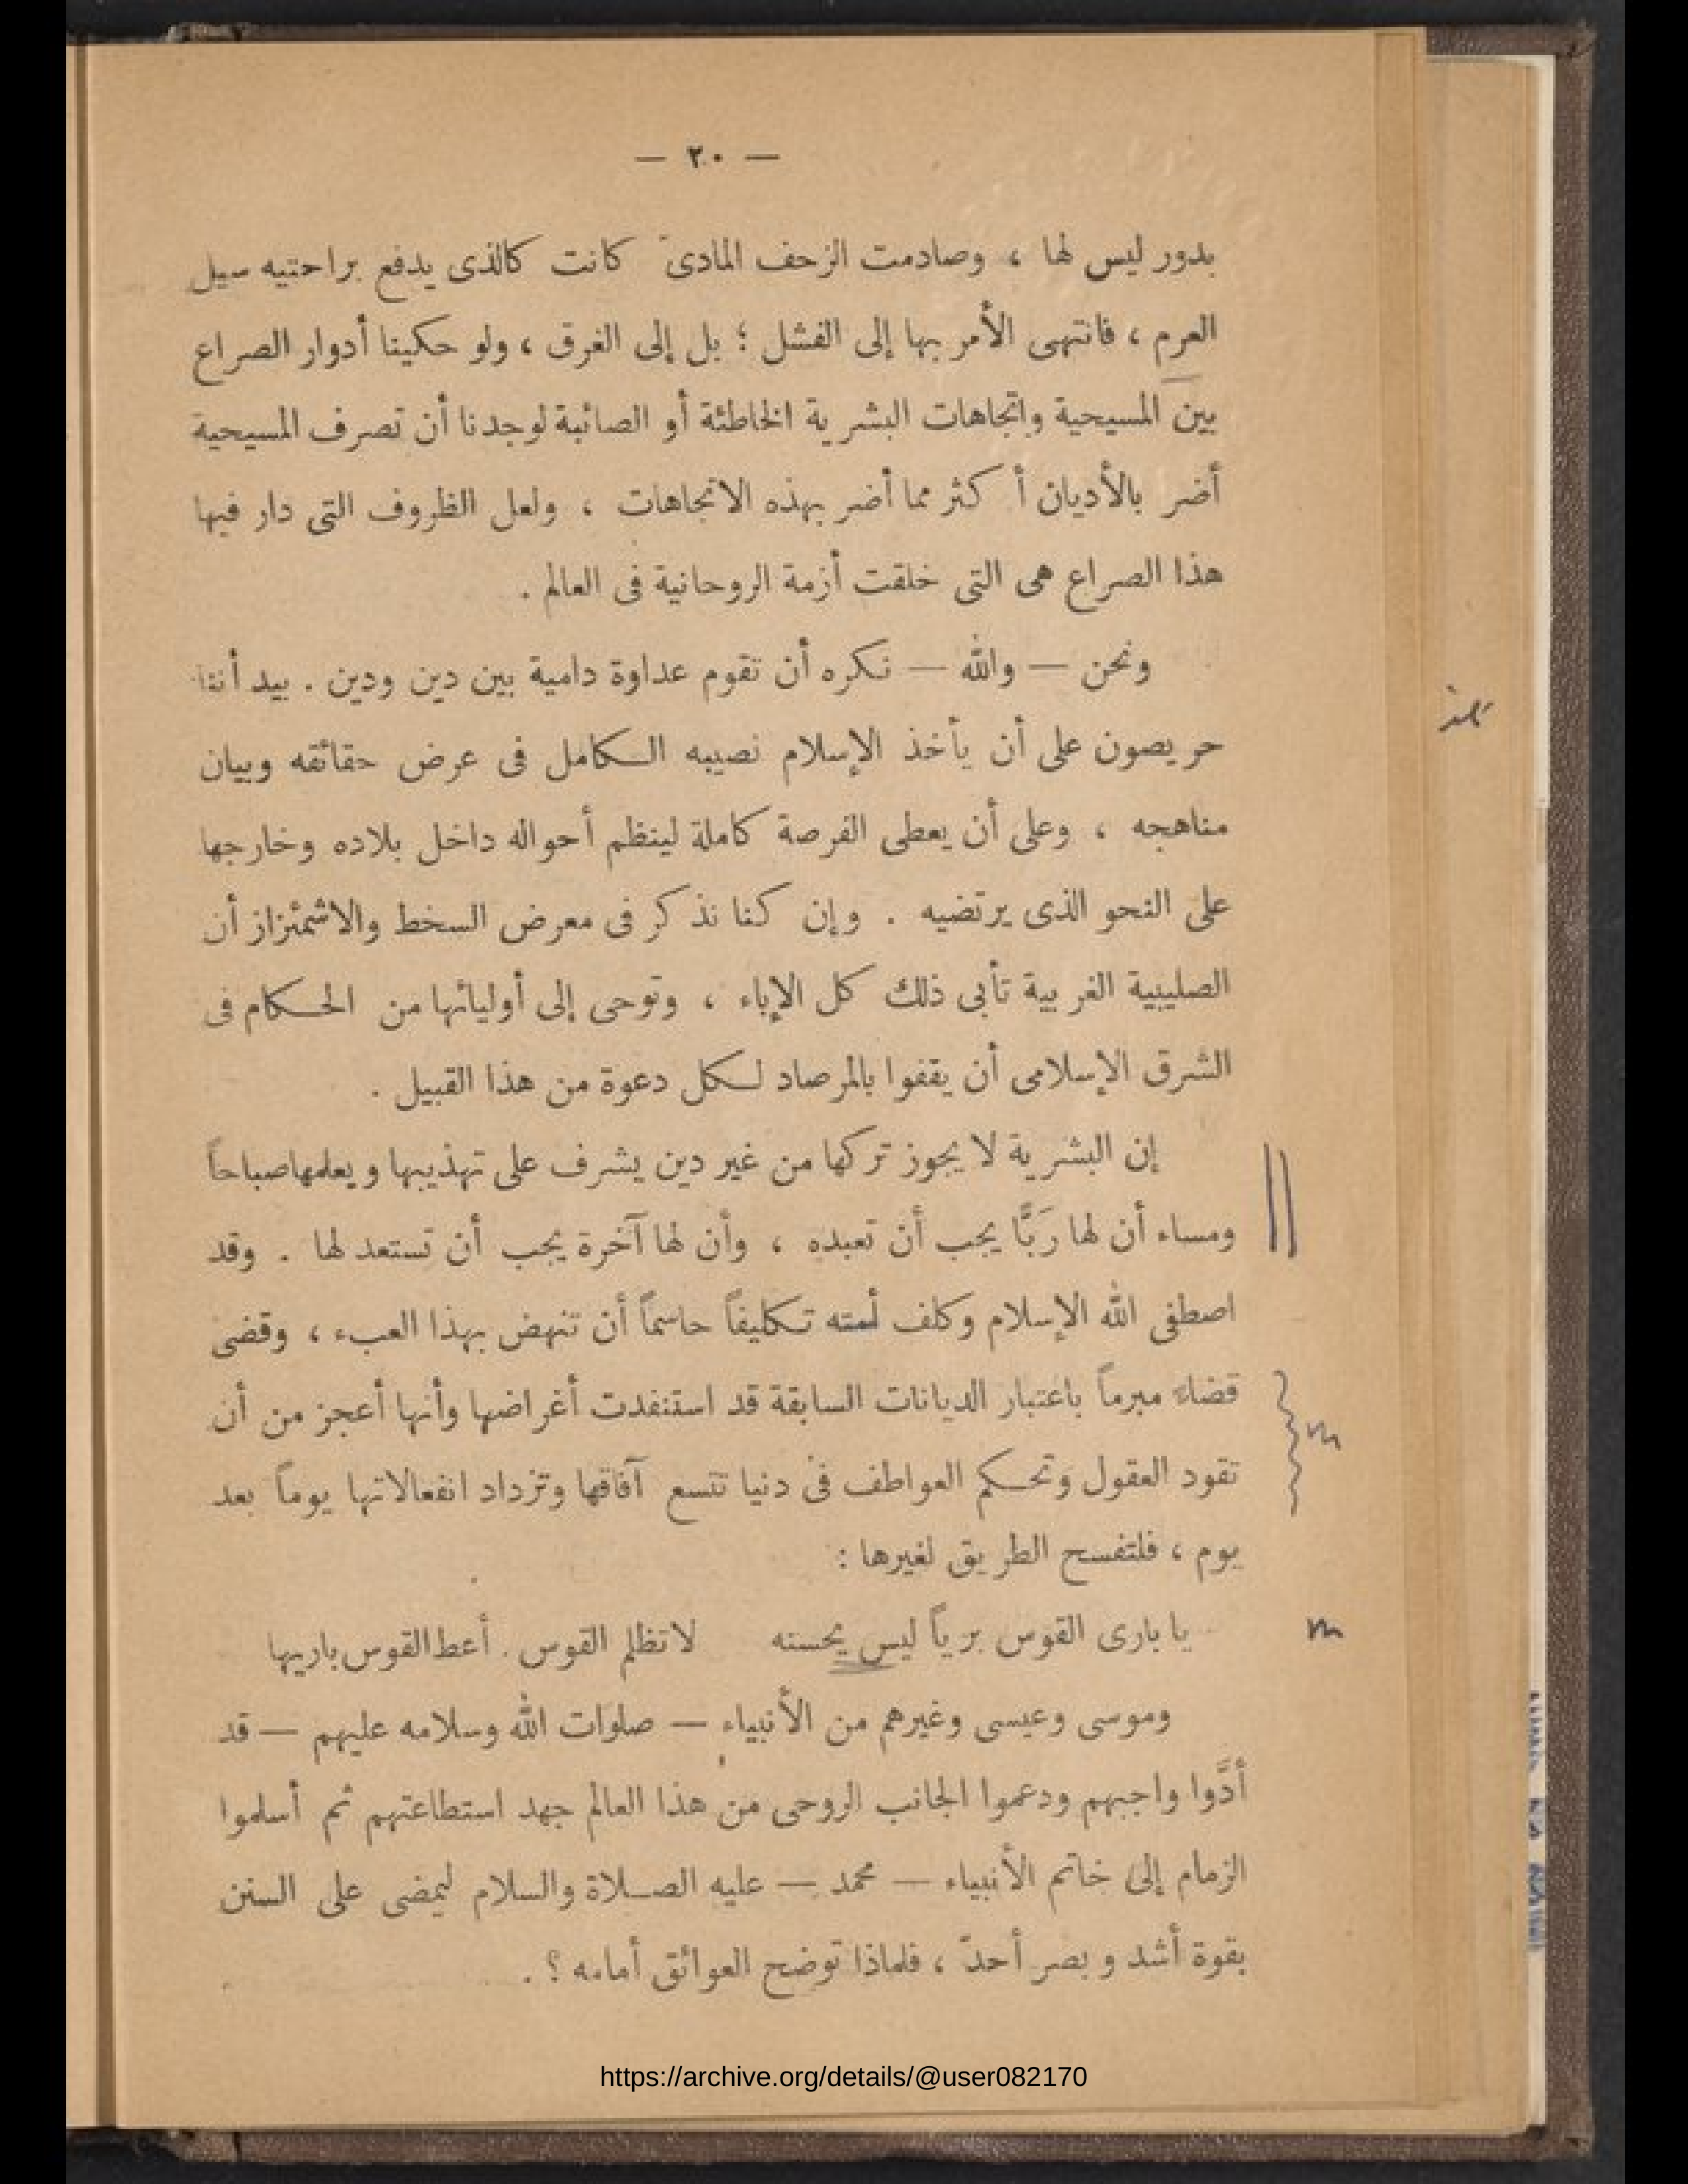 — ٢٠ —
بدور ليس لها ، وصادمت الزحف المادىّ كانت كالذى يدفع براحتيه سيل
العرم ، فانتهى الأمر بها إلى الفشل ؛ بل إلى الغرق ، ولو حكينا أدوار الصراع
بين المسيحية واتجاهات البشرية الخاطئة أو الصائبة لوجدنا أن تصرف المسيحية
أضر بالأديان أكثر مما أضر بهذه الاتجاهات ، ولعل الظروف التى دار فيها
هذا الصراع هى التى خلقت أزمة الروحانية فى العالم .
ونحن — والله — نكره أن تقوم عداوة دامية بين دين ودين . بيد أننا
حريصون على أن يأخذ الإسلام نصيبه الكامل فى عرض حقائقه وبيان
مناهجه ، وعلى أن يعطى الفرصة كاملة لينظم أحواله داخل بلاده وخارجها
على النحو الذى يرتضيه . وإن كنا نذكر فى معرض السخط والاشمئزاز أن
الصليبية الغربية تأبى ذلك كل الإباء ، وتوحى إلى أوليائها من الحكام فى
الشرق الإسلامى أن يقفوا بالمرصاد لكل دعوة من هذا القبيل .
إن البشرية لا يجوز تركها من غير دين يشرف على تهذيبها ويعلمها صباحاً
ومساء أن لها رَبًّا يجب أن تعبده ، وأن لها آخرة يجب أن تستعد لها . وقد
اصطفى الله الإسلام وكلف أمته تكليفاً حاسماً أن تنهض بهذا العبء ، وقضى
قضاء مبرماً باعتبار الديانات السابقة قد استنفدت أغراضها وأنها أعجز من أن
تقود العقول وتحكم العواطف فى دنيا تتسع آفاقها وتزداد انفعالاتها يوماً بعد
يوم ، فلتفسح الطريق لغيرها :
يا بارى القوس برياً ليس يحسنه لا تظلم القوس . أعط القوس باريها
وموسى وعيسى وغيرهم من الأنبياء — صلوات الله وسلامه عليهم — قد
أدَّوا واجبهم ودعموا الجانب الروحى من هذا العالم جهد استطاعتهم ثم أسلموا
الزمام إلى خاتم الأنبياء — محمد — عليه الصلاة والسلام ليمضى على السنن
بقوة أشد وبصر أحدّ ، فلماذا توضح العوائق أمامه ؟ .
https://archive.org/details/@user082170